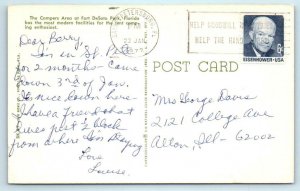 The Campers Area at Fort DeSoto Park, Florida
has the most modern facilities for the camp-
ing enthusiast.
PM
22 JAN
1972
HELP GOODWILL
HELP THE HANDI
6c
EISENHOWER·USA
POST CARD
Dear Barry,
I'm in St. Pete
for 2 months - came
down 3rd of Jan.
It nice down here
have a friend that
lives just ½ block
from where I'm staying
Love
Louise.
Mrs George Davis
2121 College Ave
Alton, Ill - 62002